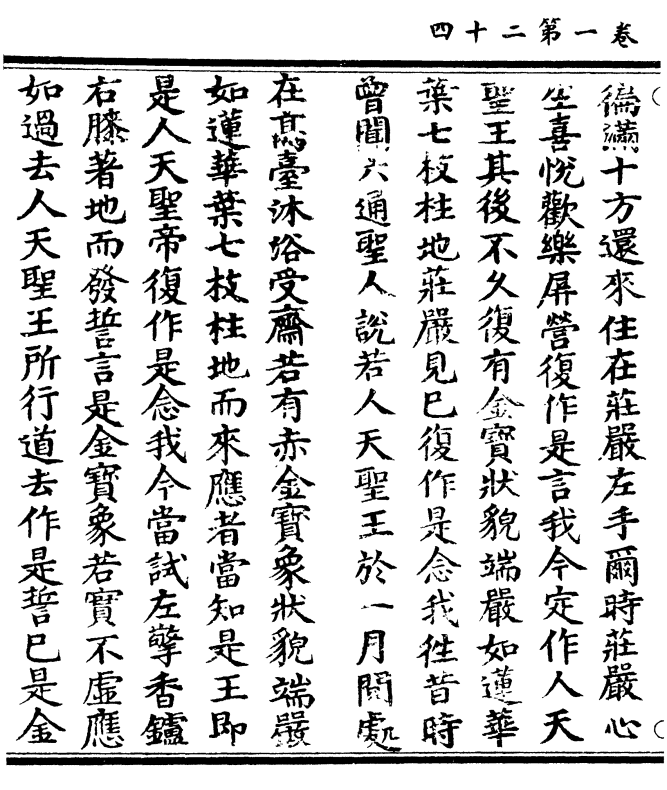 卷一第二十四
徧滿十方還來住在莊嚴左手爾時莊嚴心
生喜悅歡樂屏營復作是言我今定作人天
聖王其後不久復有金寶狀貌端嚴如蓮華
葉七枝柱地莊嚴見已復作是念我往昔時
曾聞六通聖人說若人天聖王於一月閒處
在高臺沐浴受齋若有赤金寶象狀貌端嚴
如蓮華葉七枝柱地而來應者當知是王即
是人天聖帝復作是念我今當試左擎香鑪
右膝著地而發誓言是金寶象若實不虛應
如過去人天聖王所行道去作是誓已是金